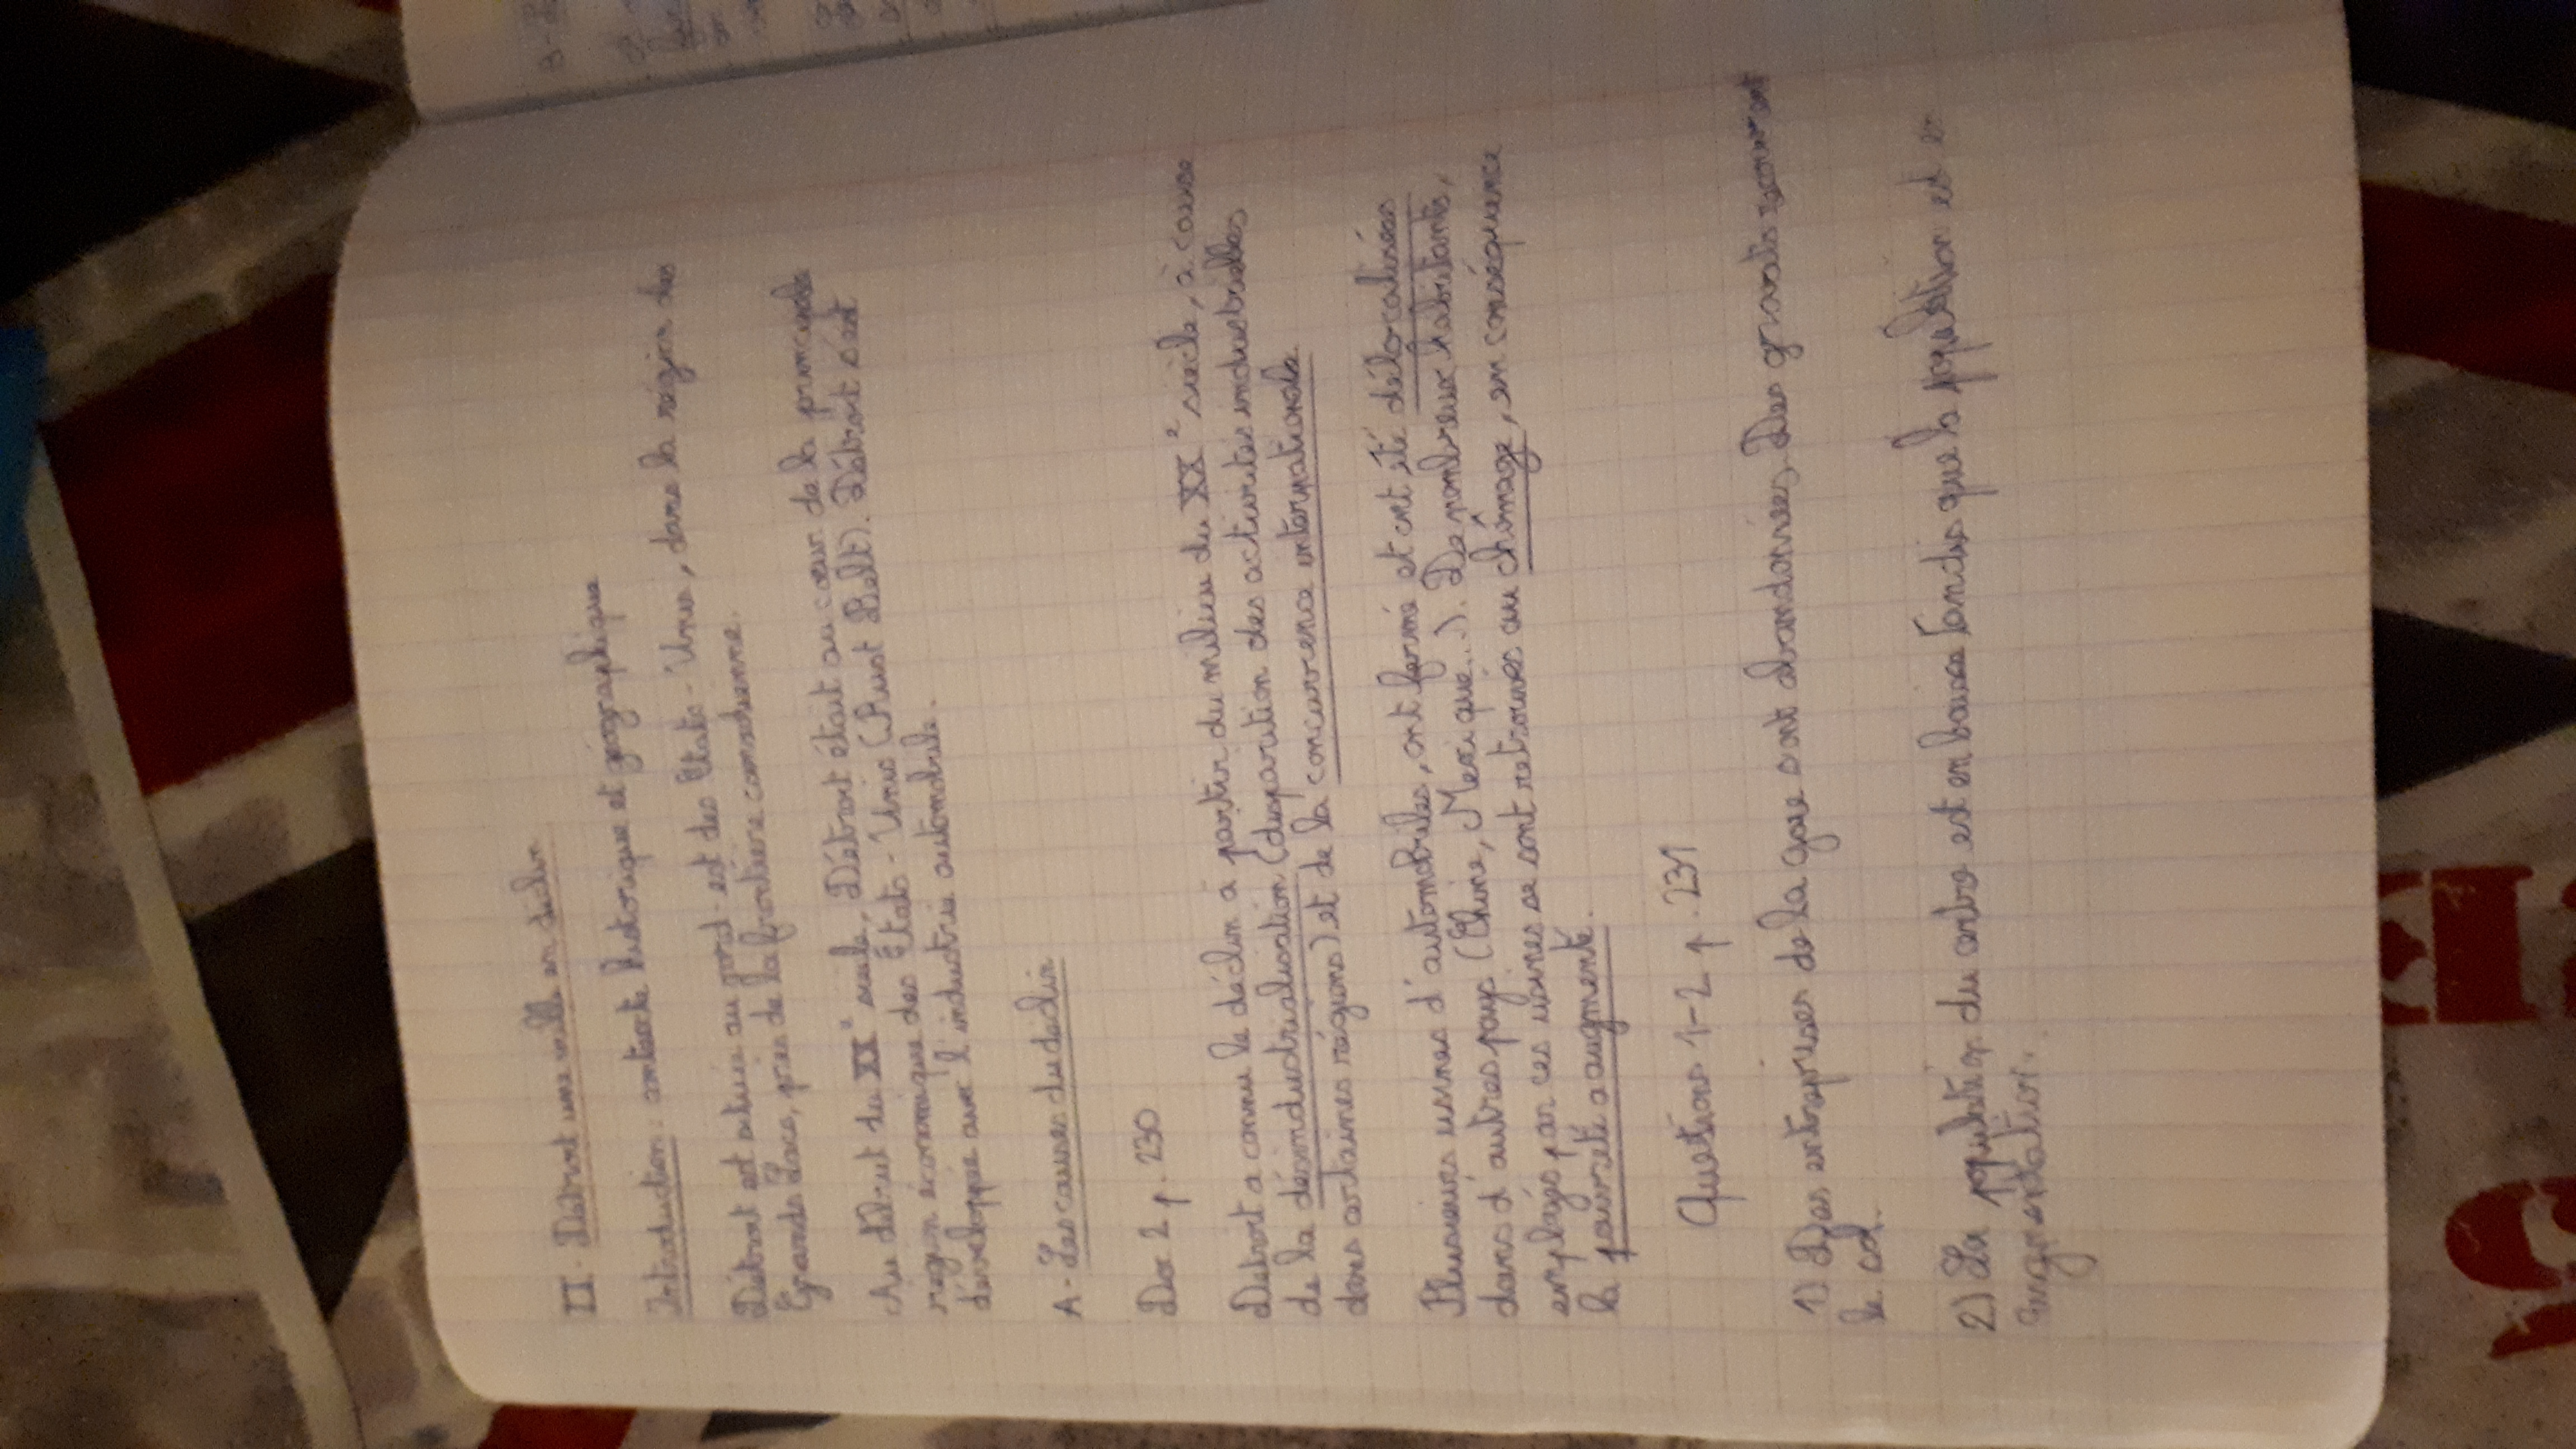 II - Détroit une ville en déclin
Introduction : contexte historique et géographique
Détroit est située au nord-est des États-Unis, dans la région des
Grands Lacs, près de la frontière canadienne.
Au début du XXe siècle, Détroit était au cœur de la principale
région économique des États-Unis (Rust Belt). Détroit s'est
développée avec l'industrie automobile.
A - Les causes du déclin
Doc 2 p. 230
Détroit a connu le déclin à partir du milieu du XXe siècle, à cause
de la désindustrialisation (disparition des activités industrielles
dans certaines régions) et de la concurrence internationale.
Plusieurs usines d'automobiles, ont fermé et ont été délocalisées
dans d'autres pays (Chine, Mexique...). De nombreux habitants,
employés par ces usines se sont retrouvés au chômage, en conséquence
la pauvreté a augmenté.
Questions 1-2 p. 231
1) Des entreprises de la gare sont abandonnées. Des gravats recouvrent
le sol.
2) La population du centre est en baisse tandis que la population est en
augmentation.